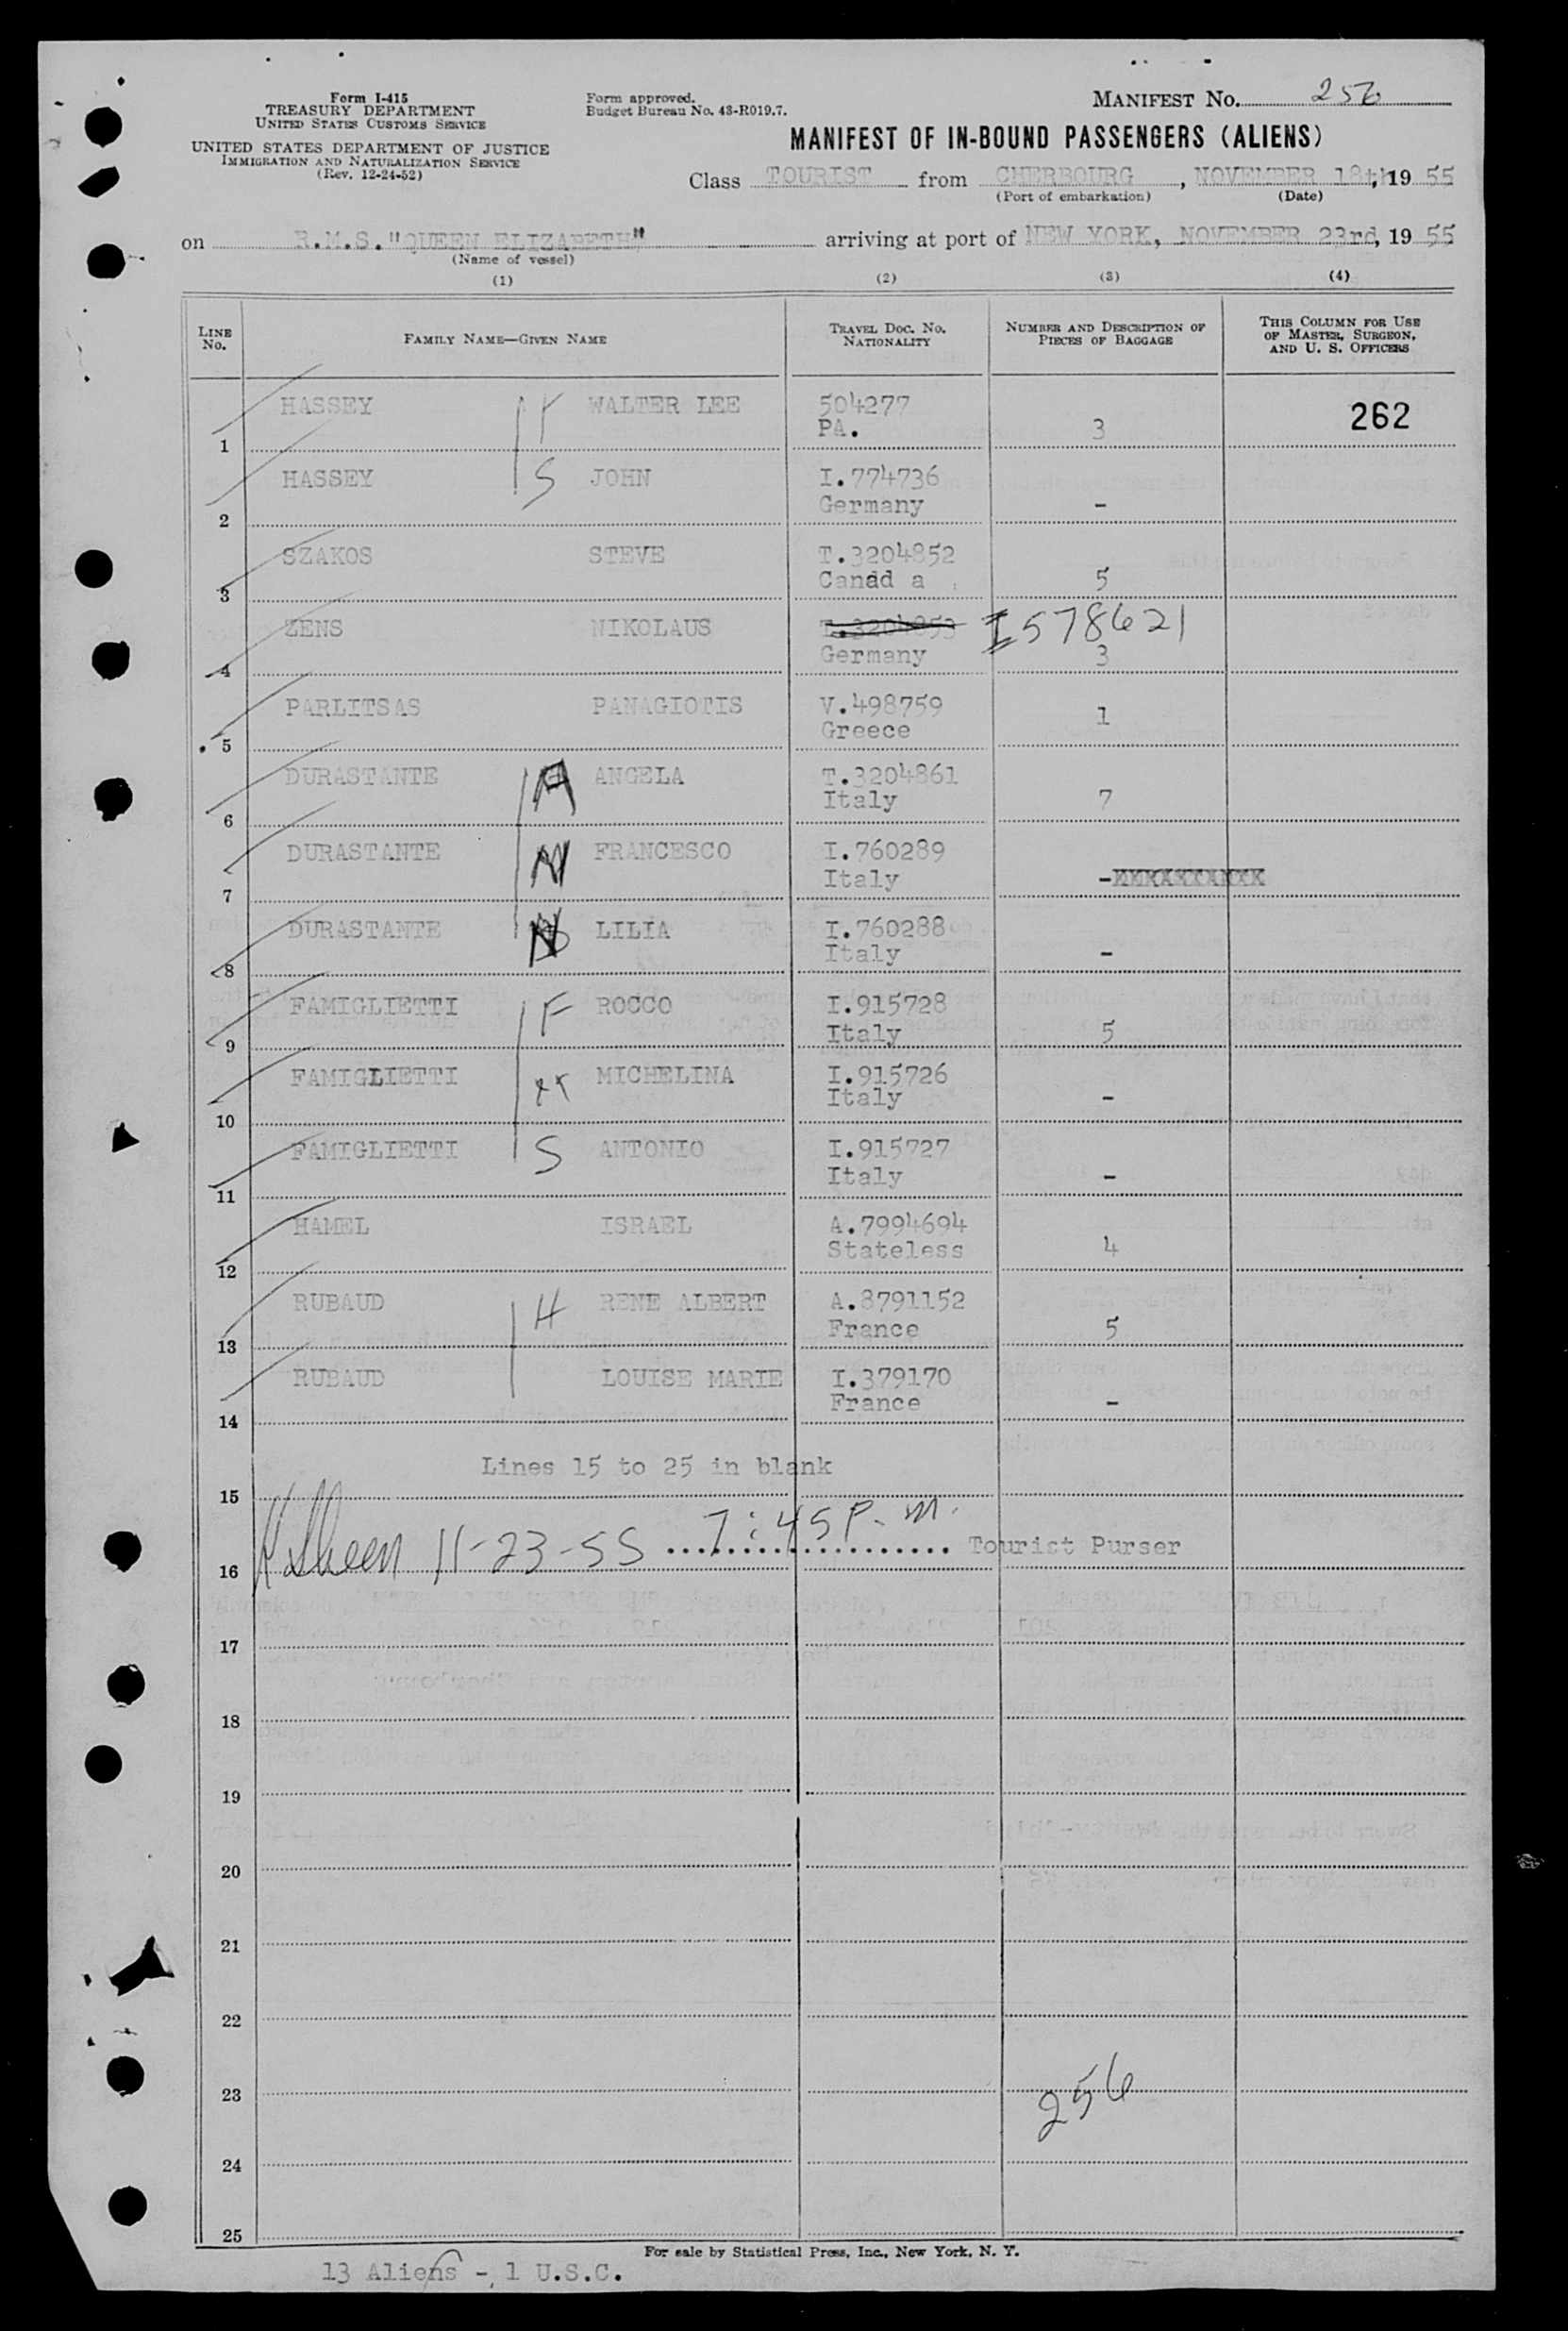 Form I-415
TREASURY DEPARTMENT
UNITED STATES CUSTOMS SERVICE
UNITED STATES DEPARTMENT OF JUSTICE
IMMIGRATION AND NATURALIZATION SERVICE
(Rev. 12-24-52)
Form approved.
Budget Bureau No. 43-R019.7.
MANIFEST NO. 256
MANIFEST OF IN-BOUND PASSENGERS (ALIENS)
Class TOURIST from CHERBOURG, NOVEMBER 18th, 19 55
(Port of embarkation) (Date)
on R.M.S."QUEEN ELIZABETH" arriving at port of NEW YORK, NOVEMBER 23rd, 19 55
(Name of vessel)
(1) (2) (3) (4)
LINE No. FAMILY NAME—GIVEN NAME TRAVEL DOC. NO. NATIONALITY NUMBER AND DESCRIPTION OF PIECES OF BAGGAGE THIS COLUMN FOR USE OF MASTER, SURGEON, AND U. S. OFFICERS
HASSEY WALTER LEE 504277 262
1 PA. 3
HASSEY S JOHN I.774736
2 Germany -
SZAKOS STEVE T.3204852
3 Canad a 5
ZENS NIKOLAUS T.3204853 I578621
4 Germany 3
PARLITSAS PANAGIOTIS V.498759
5 Greece 1
DURASTANTE A ANGELA T.3204861
6 Italy 7
DURASTANTE N FRANCESCO I.760289
7 Italy -
DURASTANTE N LILIA I.760288
8 Italy -
FAMIGLIETTI F ROCCO I.915728
9 Italy 5
FAMIGLIETTI MICHELINA I.915726
10 Italy -
FAMIGLIETTI S ANTONIO I.915727
11 Italy -
HAMEL ISRAEL A.7994694
12 Stateless 4
RUBAUD H RENE ALBERT A.8791152
13 France 5
RUBAUD LOUISE MARIE I.379170
14 France -
Lines 15 to 25 in blank
15
11-23-55 7:45 P.M. Tourist Purser
16
17
18
19
20
21
22
23 256
24
25
For sale by Statistical Press, Inc., New York, N. Y.
13 Aliens - 1 U.S.C.